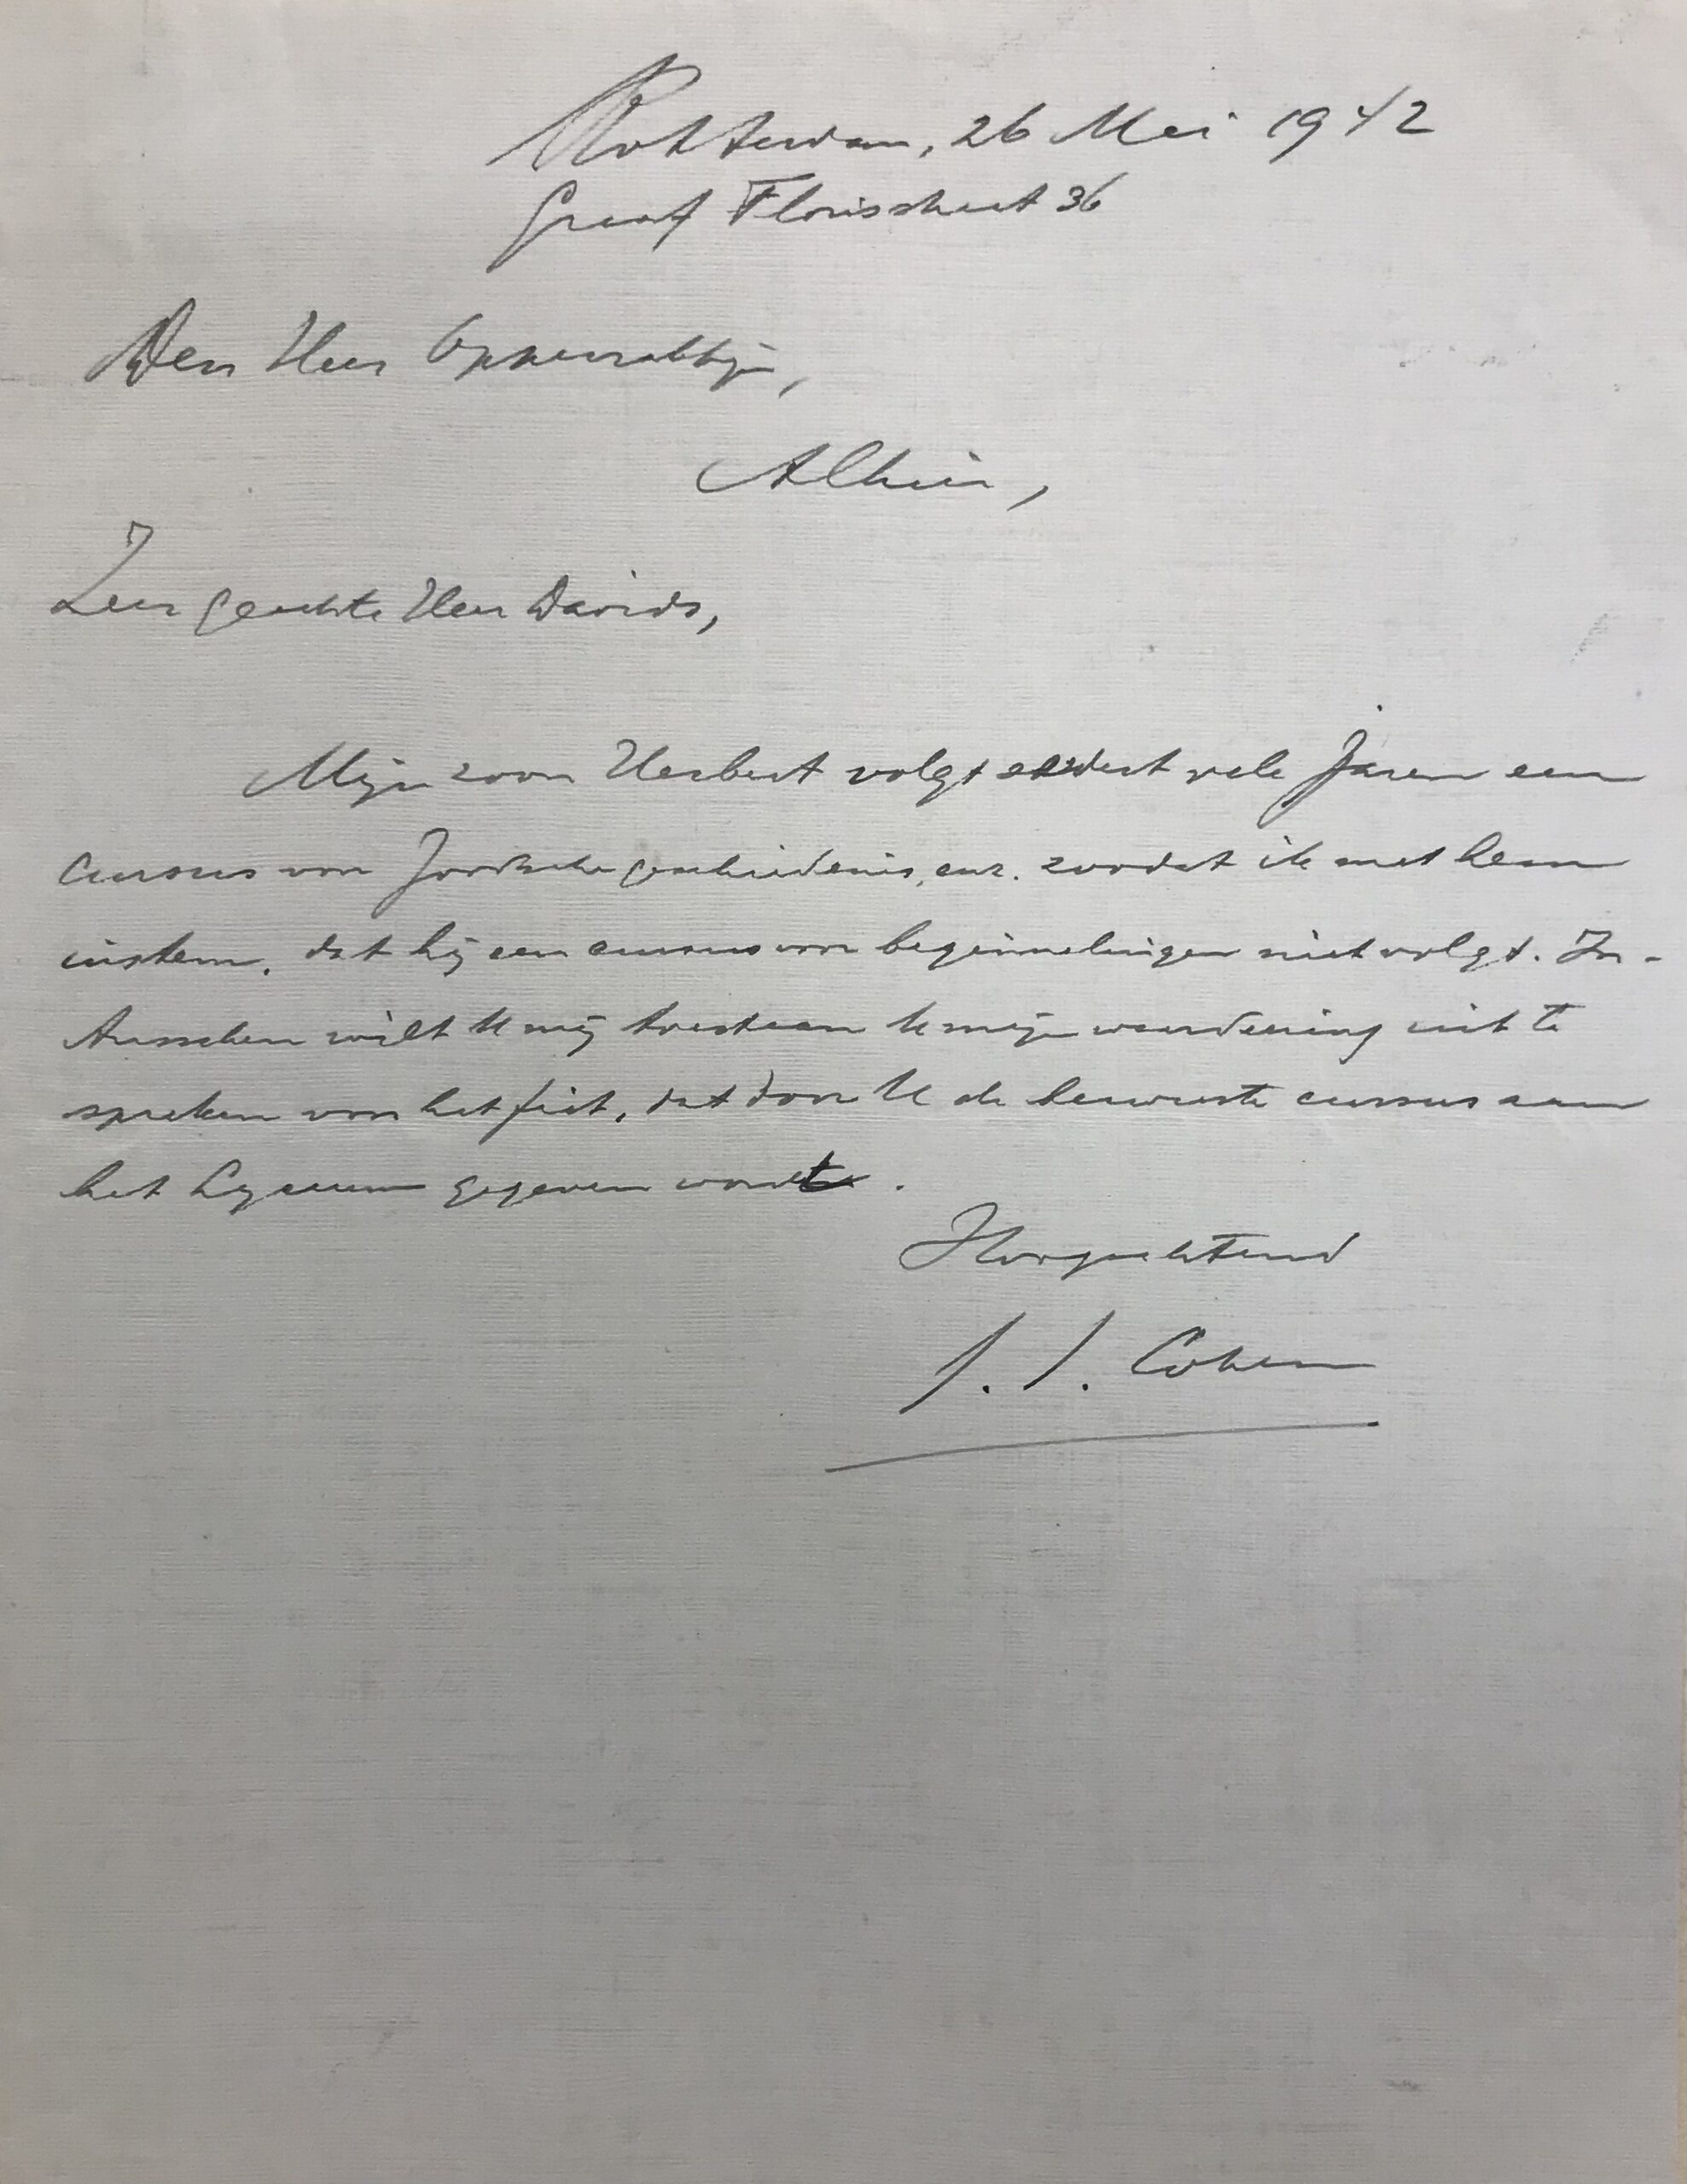 Rotterdam, 26 Mei 1942
Graaf Florisstraat 36
Den Heer Opperrabbijn,
Alhier,
Zeer geachte Heer Davids,
Mijn zoon Herbert volgt sedert vele Jaren een
cursus von Joodsche geschiedenis, enz. zoodat ik met hem
instem, dat hij een cursus voor beginnelingen niet volgt. In-
tusschen wilt U mij toestaan U mijn waardeering uit te
spreken voor het feit, dat door U de bewuste cursus aan
het Lyceum gegeven wordt.
Hoogachtend
J. J. Cohen